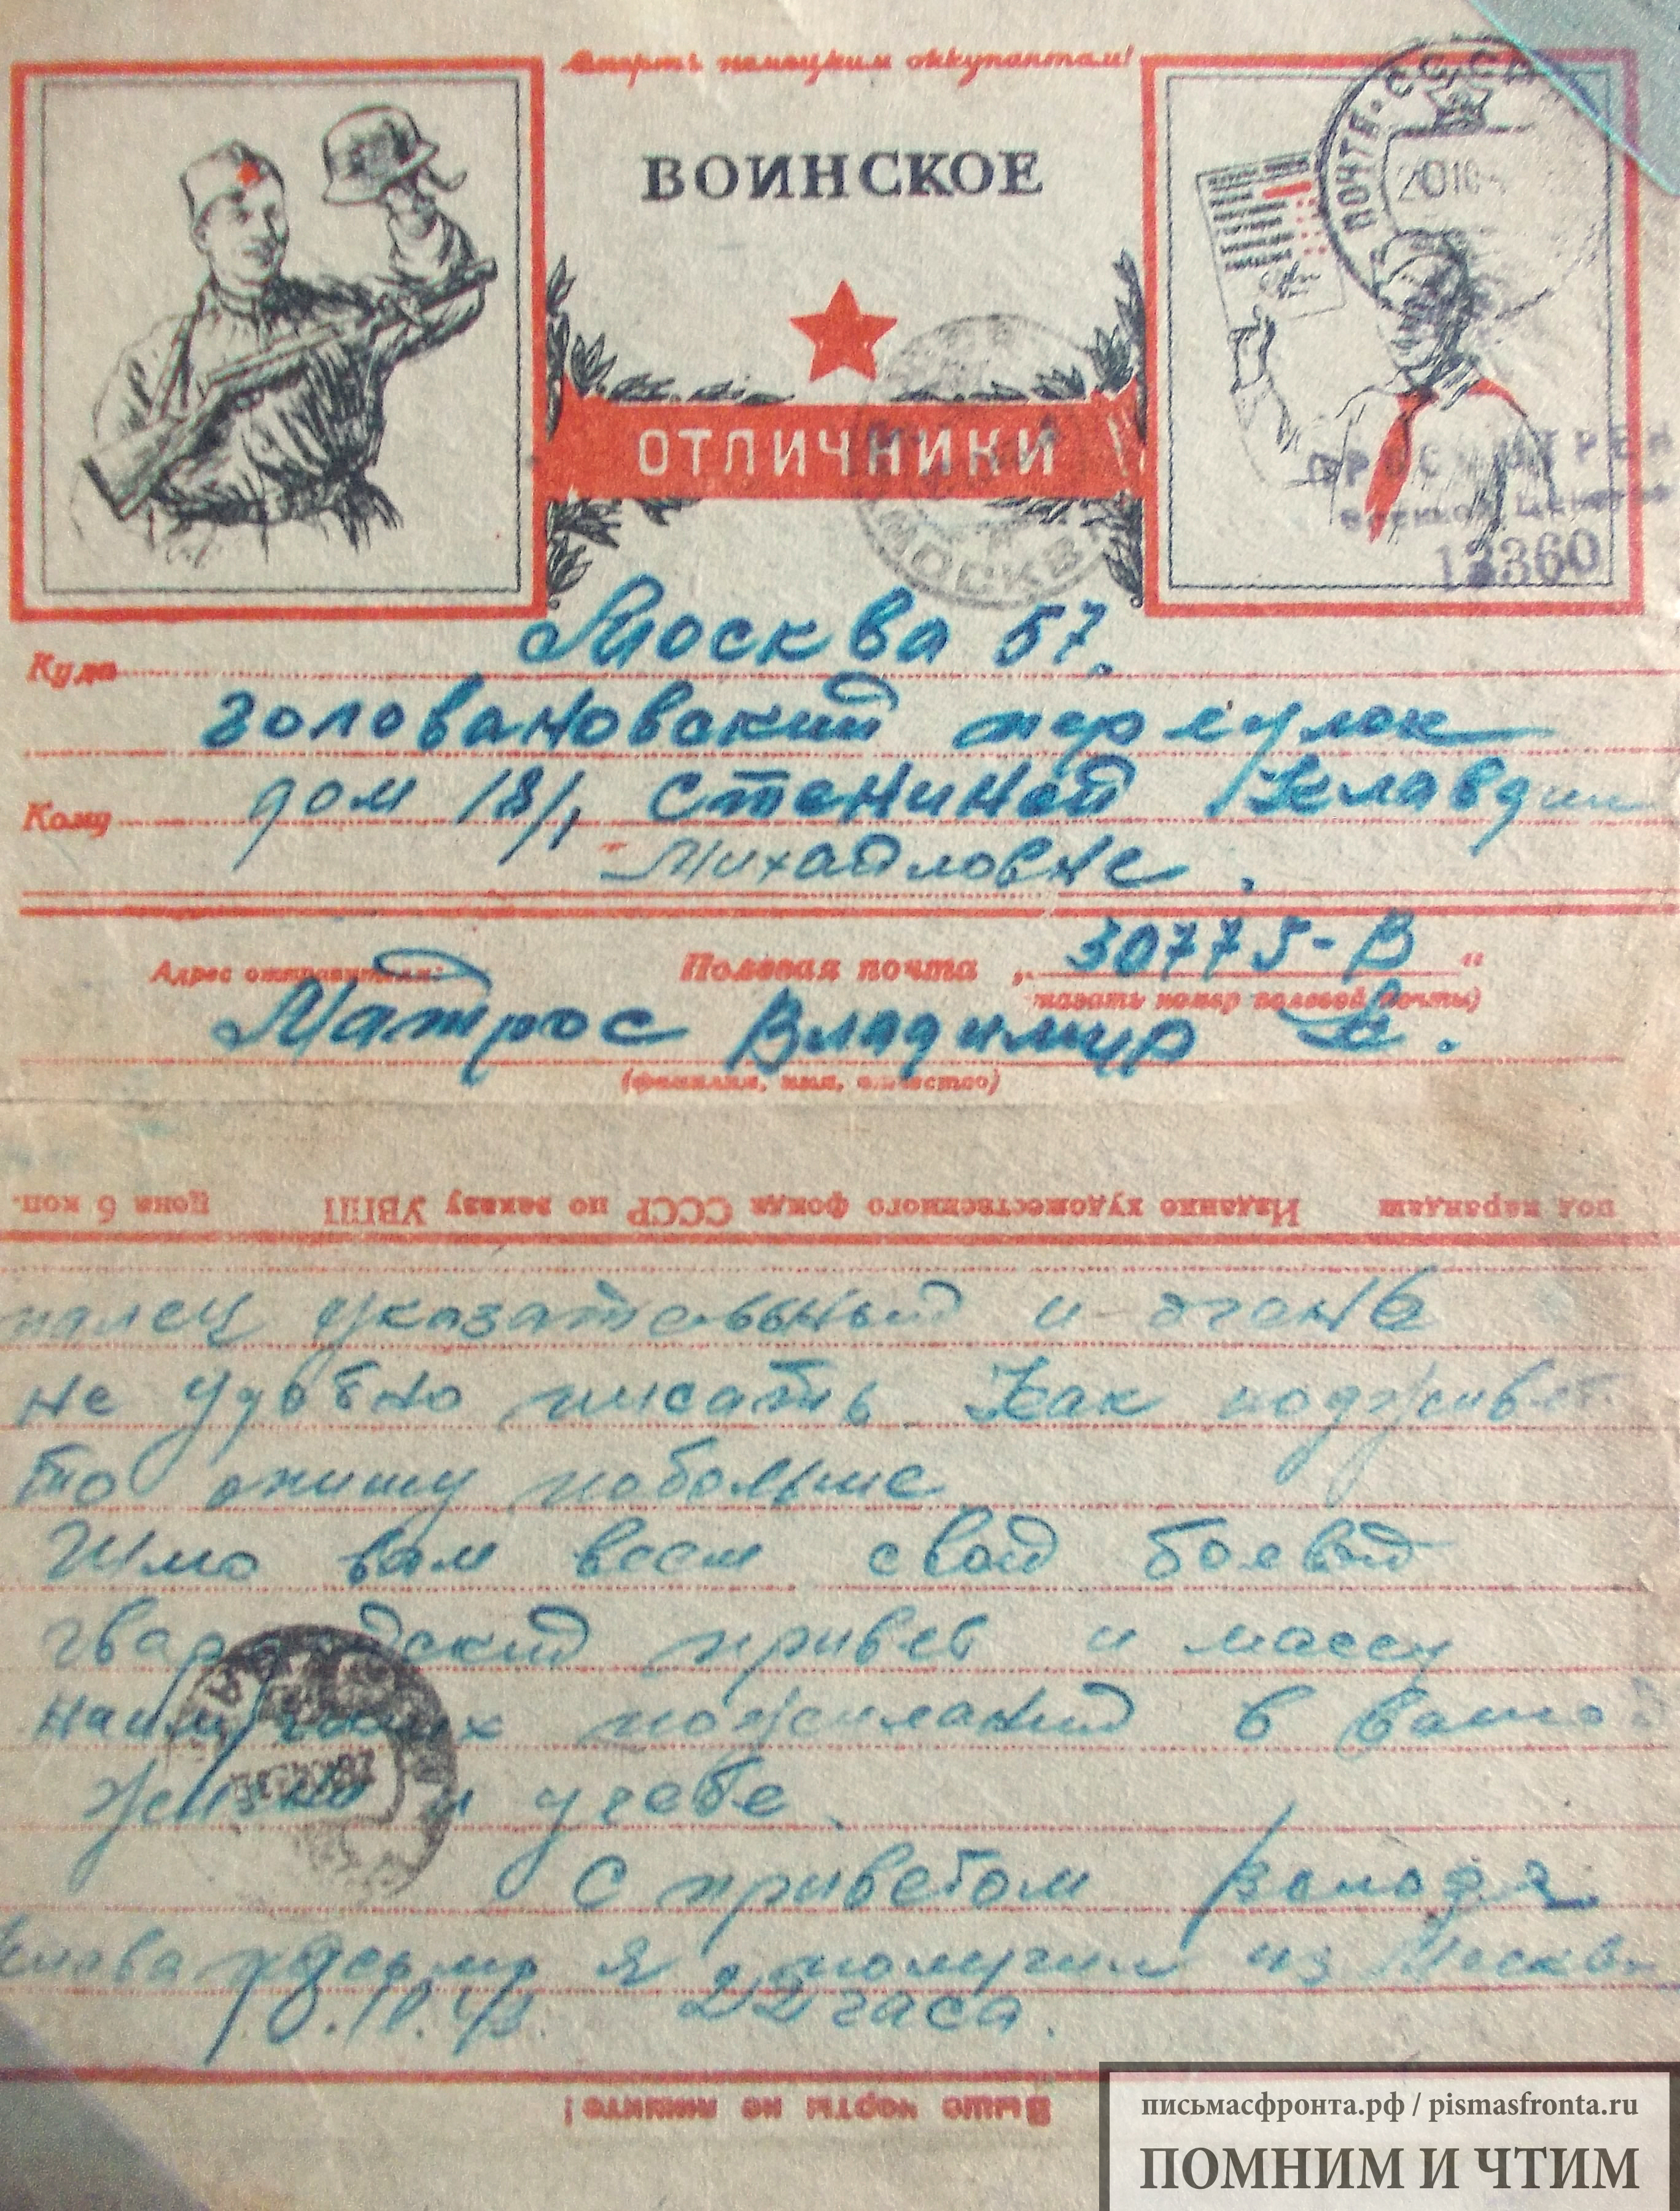 Смерть немецким оккупантам!
ВОИНСКОЕ
ПОЧТА СССР
2010
ОТЛИЧНИКИ
МОСКВА
ПРОСМОТРЕНО
Военной Цензурой
12360
Куда Москва 57.
головановский переулок
Кому дом 18/1, Стениной Клавдии
Михайловне.
Адрес отправителя: Полевая почта „30775-В“
(указать номер полевой почты)
Матрос Владимир К.
(фамилия, имя, отчество)
под карандаш Издание художественного фонда СССР по заказу УВПП Цена 6 коп.
палец указательный и очень
не удобно писать. Как подживет
то опишу побольше
Шлю вам всем свой боевой
гвардейский привет и массу
наилучших пожеланий в вашей
жизни и учебе.
С приветом Володя.
я получил из Москвы
10.10.43. 22 часа.
Выше черты не пишите!
письмасфронта.рф / pismasfronta.ru
ПОМНИМ И ЧТИМ